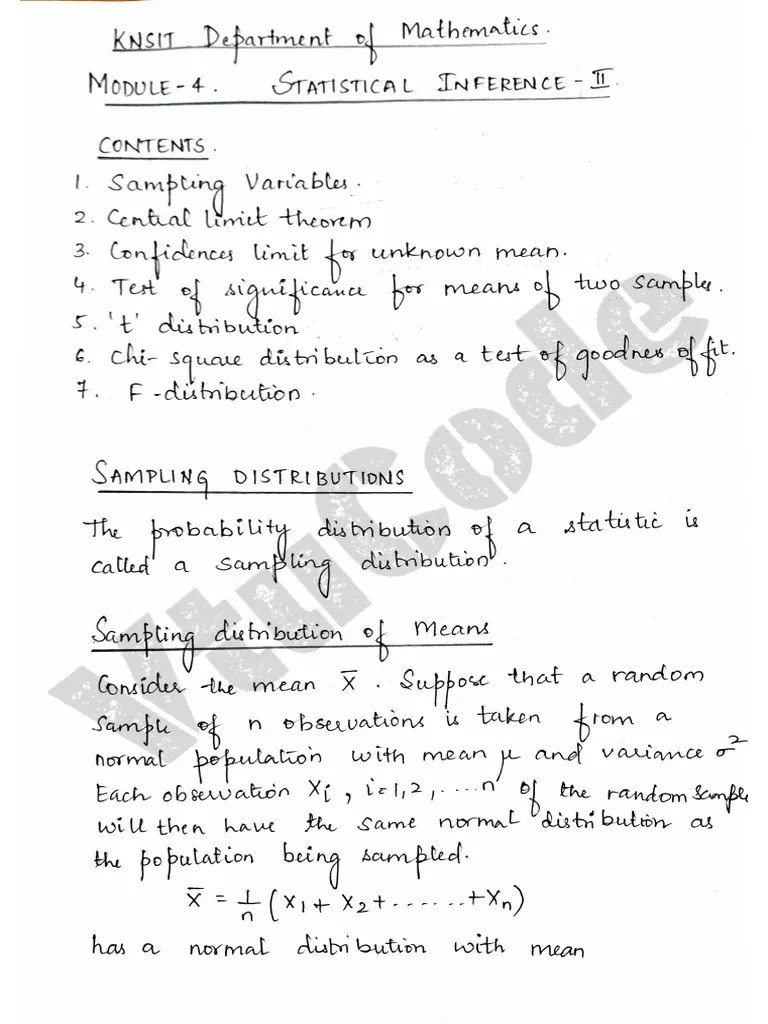 KNSIT Department of Mathematics.
MODULE-4. STATISTICAL INFERENCE-II.
CONTENTS.
1. Sampling Variables.
2. Central limit theorem
3. Confidences limit for unknown mean.
4. Test of significance for means of two samples.
5. 't' distribution
6. Chi-square distribution as a test of goodness of fit.
7. F-distribution.
SAMPLING DISTRIBUTIONS
The probability distribution of a statistic is
called a sampling distribution.
Sampling distribution of Means
Consider the mean X̄. Suppose that a random
sample of n observations is taken from a
normal population with mean μ and variance σ²
Each observation Xi, i=1,2,....n of the random sample
will then have the same normal distribution as
the population being sampled.
X̄ = 1/n (X₁ + X₂ + ...... + Xₙ)
has a normal distribution with mean
VtuCode